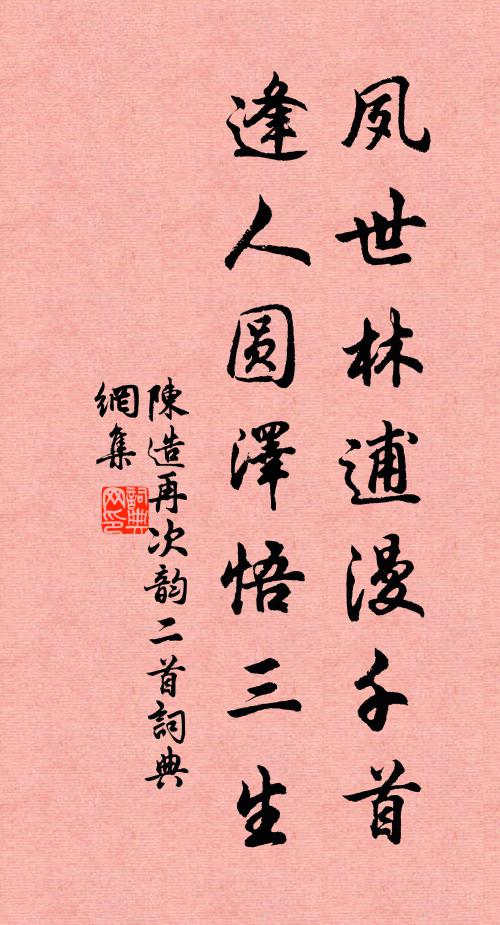 夙世林逋漫千首
逢人圆澤悟三生
陳造再次韵二首詞典
網集
詞典
网印